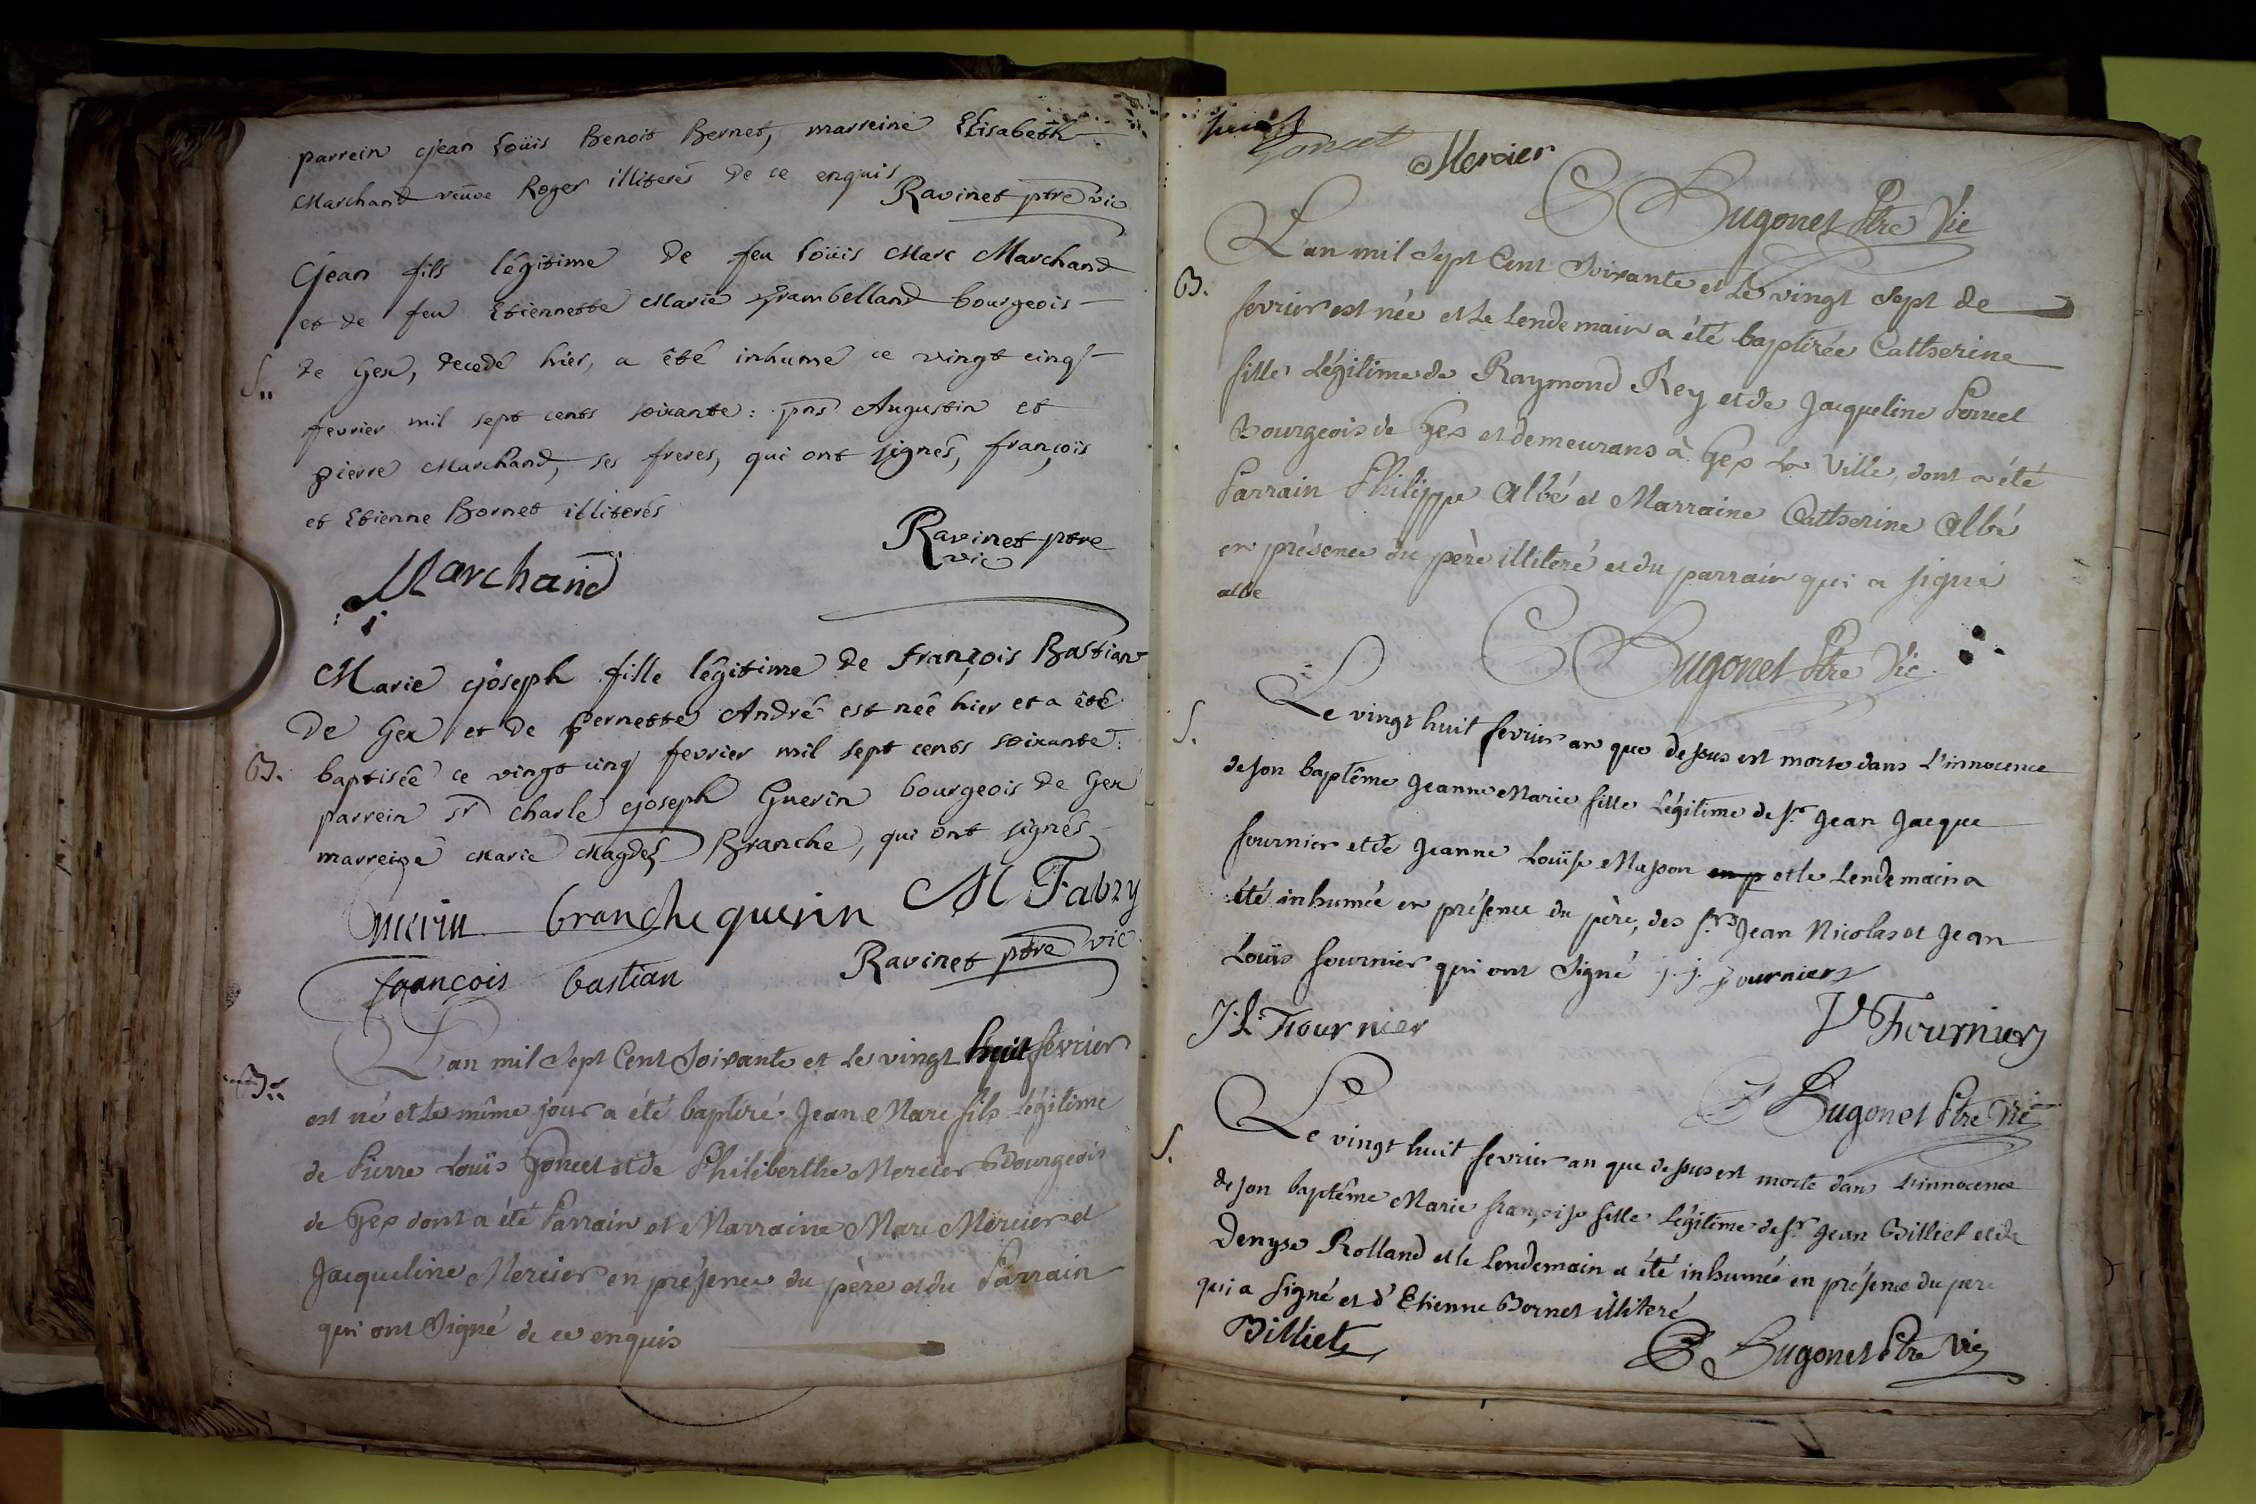 parrein Jean Loüis Benoit Bernet, marreine Elisabeth
Marchand veuve Roger illiterés de ce enquis
Ravinet ptre vic
Jean fils légitime de feu Loüis Marc Marchand
et de feu Etiennette Marie Grambelland bourgeois
S.. de Gex, decedé hier, a êté inhumé ce vingt cinq
fevrier mil sept cents soixante : pns Augustin et
pierre Marchand, ses freres, qui ont signés, françois
et Etienne Bornet illiterés
Ravinet ptre
vic
Marchand
Marie Joseph fille légitime de françois Bastian
De Gex et de Pernette André est née hier et a êté
B. baptisée ce vingt cinq fevrier mil sept cents soixante :
parrein sr charle Joseph Guerin bourgeois de Gex
marreine Marie Magdel Branche, qui ont signés
Guerin branche guerin M Fabry
françois bastian Ravinet ptre vic
L'an mil Sept Cent Soixante et Le vingt huit fevrier
B.. est né et le même jour a été baptizé Jean Marc fils Légitime
de Pierre Loüis Poncet et de Philiberthe Mercier Bourgeois
de Gex dont a été Parrain et Marraine Marc Mercier et
Jacqueline Mercier en présence du père et du Parrain
qui ont Signé de ce enquis
Poncet Mercier
Bugonet Ptre Vic
L'an mil Sept Cent Soixante et Le vingt Sept de
B. fevrier est née et Le Lendemain a été baptizée Catherine
fille Légitime de Raymond Rey et de Jacqueline Poncet
Bourgeois de Gex et demeurans à Gex La Ville, dont a été
Parrain Philippe Albé et Marraine Catherine Albé
en présence du père illiteré et du parrain qui a signé
albe
Bugonet Ptre Vic.
S. Le vingt huit fevrier an que dessus est morte dans L'innocence
de son baptême Jeanne Marie fille Légitime de Sr. Jean Jacque
fournier et de Jeanne Louïse Masson en p et le Lendemain a
été inhumée en présence du père, des Srs Jean Nicolas et Jean
Loüis fournier qui ont Signé j. j. fournier
J. L. Fournier
Fournier
Bugonet Ptre Vic
S. Le vingt huit fevrier an que dessus est morte dans L'innocence
de son baptême Marie françoise fille Légitime de Sr. Jean Billiet et de
Denyse Rolland et le Lendemain a été inhumée en présence du pere
qui a Signé et d'Etienne Bornet illiteré
Billiet
Bugonet Ptre Vic